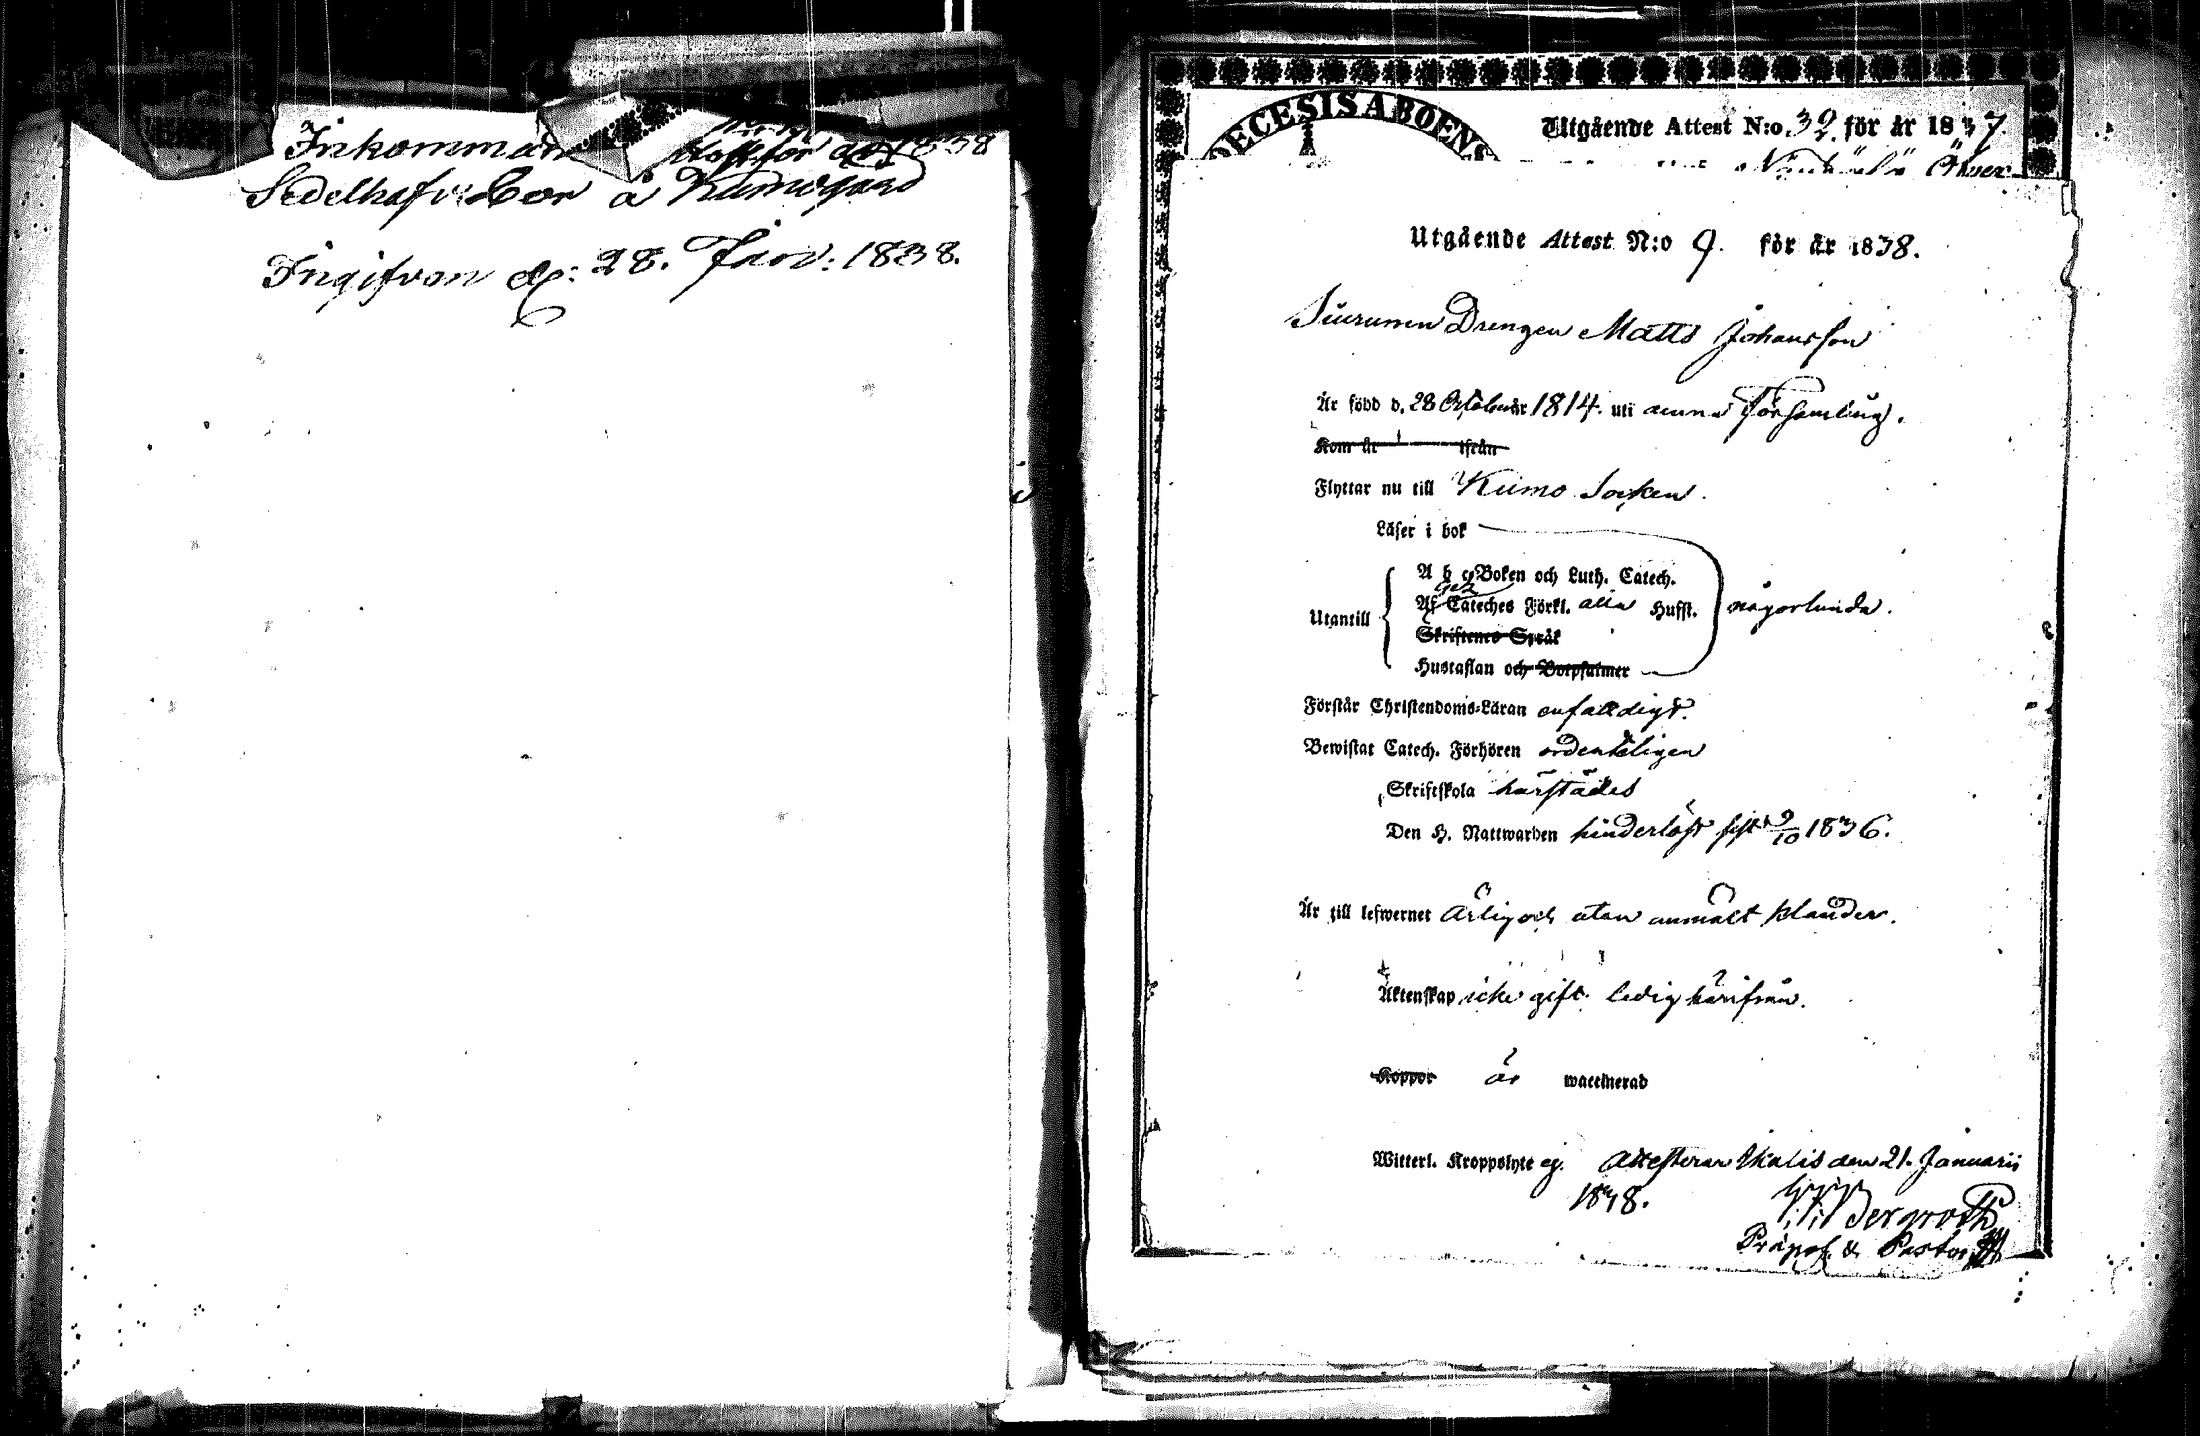 Inkomman
Attest för år 1838
Sedelhafv. bor å Kumogård
Ingifven d. 28. Janv: 1838.
DECESIS ABOENS
Utgående Attest N:o 32. för år 1837.
Öfver
Utgående Attest N:o 9. för år 1838.
Drengen Matts Johansson
Är född d. 28 Octobr år 1814. uti denna Församling.
Kom år ifrån
Flyttar nu till Kumo Socken.
Läser i bok
A b c Boken och Luth. Catech.
Af Cateches Förkl. alla Hufst. någorlunda.
Utantill
Skriftenes Språk
Hustaflan och Botpsalmer
Förstår Christendoms-Läran enfaldigt.
Bewistat Catech. Förhören ordenteligen
Skriftskola härstädes
Den H. Nattwarden hinderlöst sist 9/10 1836.
Är till lefwernet ärlig och utan anmält klander.
Äktenskap icke gift. ledig härifrån.
Koppor är waccinerad
Witterl. Kroppslyte ej. Attesterar Ikalis den 21. Januarii
1838.
Bergroth
Præpos. & Pastor